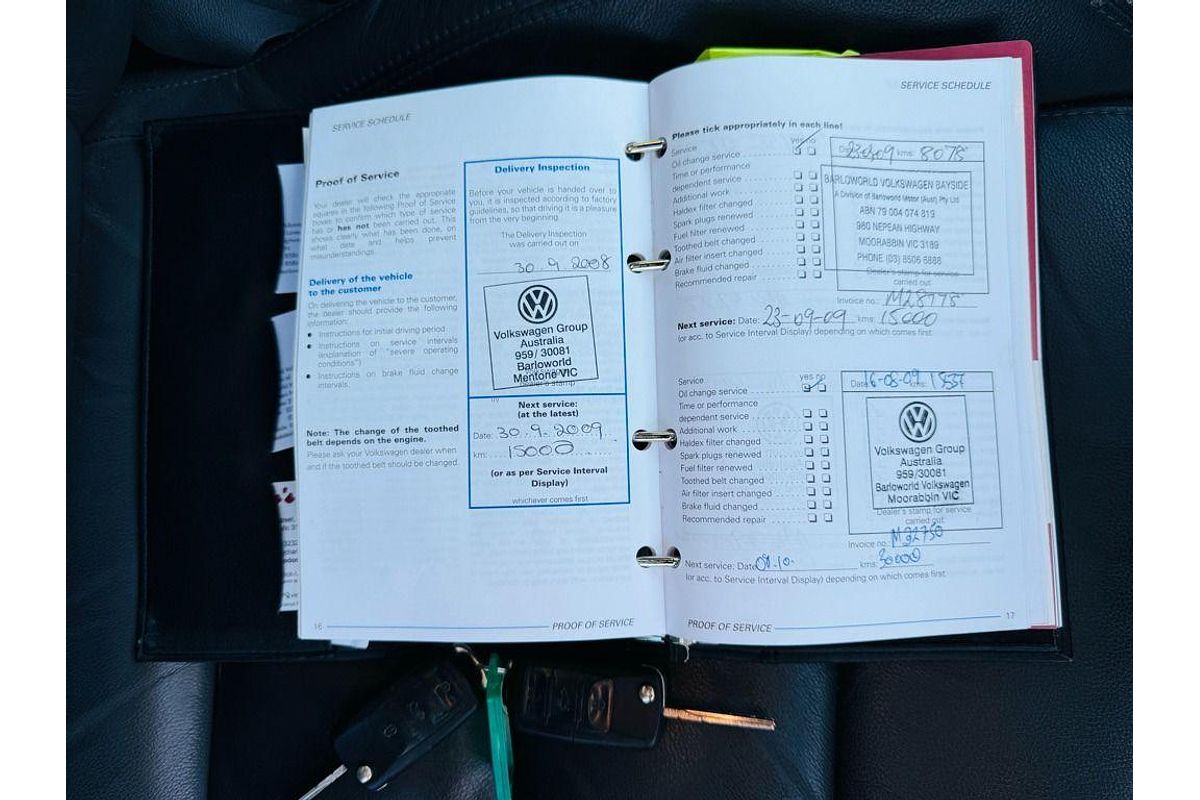 SERVICE SCHEDULE
Proof of Service
Your dealer will check the appropriate
squares in the following Proof of Service
boxes to confirm which type of service
has or has not been carried out. This
shows clearly what has been done, on
what date and helps prevent
misunderstandings.
Delivery of the vehicle
to the customer
On delivering the vehicle to the customer,
the dealer should provide the following
information:
Instructions for initial driving period
Instructions on service intervals
(explanation of "severe operating
conditions")
Instructions on brake fluid change
intervals.
Note: The change of the toothed
belt depends on the engine.
Please ask your Volkswagen dealer when
and if the toothed belt should be changed.
Delivery Inspection
Before your vehicle is handed over to
you, it is inspected according to factory
guidelines, so that driving it is a pleasure
from the very beginning.
The Delivery Inspection
was carried out on
30..9..2008
Volkswagen Group
Australia
959/30081
Barloworld
Mentone VIC
Dealer's stamp
Next service:
(at the latest)
Date: 30..9..2009
km: 15000
(or as per Service Interval
Display)
whichever comes first
16
PROOF OF SERVICE
SERVICE SCHEDULE
Please tick appropriately in each line!
Service yes no
Oil change service
Time or performance
dependent service
Additional work
Haldex filter changed
Spark plugs renewed
Fuel filter renewed
Toothed belt changed
Air filter insert changed
Brake fluid changed
Recommended repair
kms: 8075
BARLOWORLD VOLKSWAGEN BAYSIDE
A Division of Barloworld Motor (Aust) Pty Ltd
ABN 79 004 074 819
960 NEPEAN HIGHWAY
MOORABBIN VIC 3189
PHONE (03) 8506 8888
Dealer's stamp for service
carried out
Invoice no.: M28775
Next service: Date: 23-09-09 kms: 15000
(or acc. to Service Interval Display) depending on which comes first
Service yes no
Oil change service
Time or performance
dependent service
Additional work
Haldex filter changed
Spark plugs renewed
Fuel filter renewed
Toothed belt changed
Air filter insert changed
Brake fluid changed
Recommended repair
Date: 16-08-09 kms:
Volkswagen Group
Australia
959/30081
Barloworld Volkswagen
Moorabbin VIC
Dealer's stamp for service
carried out
Invoice no.:
Next service: Date: kms: 30000
(or acc. to Service Interval Display) depending on which comes first
PROOF OF SERVICE
17